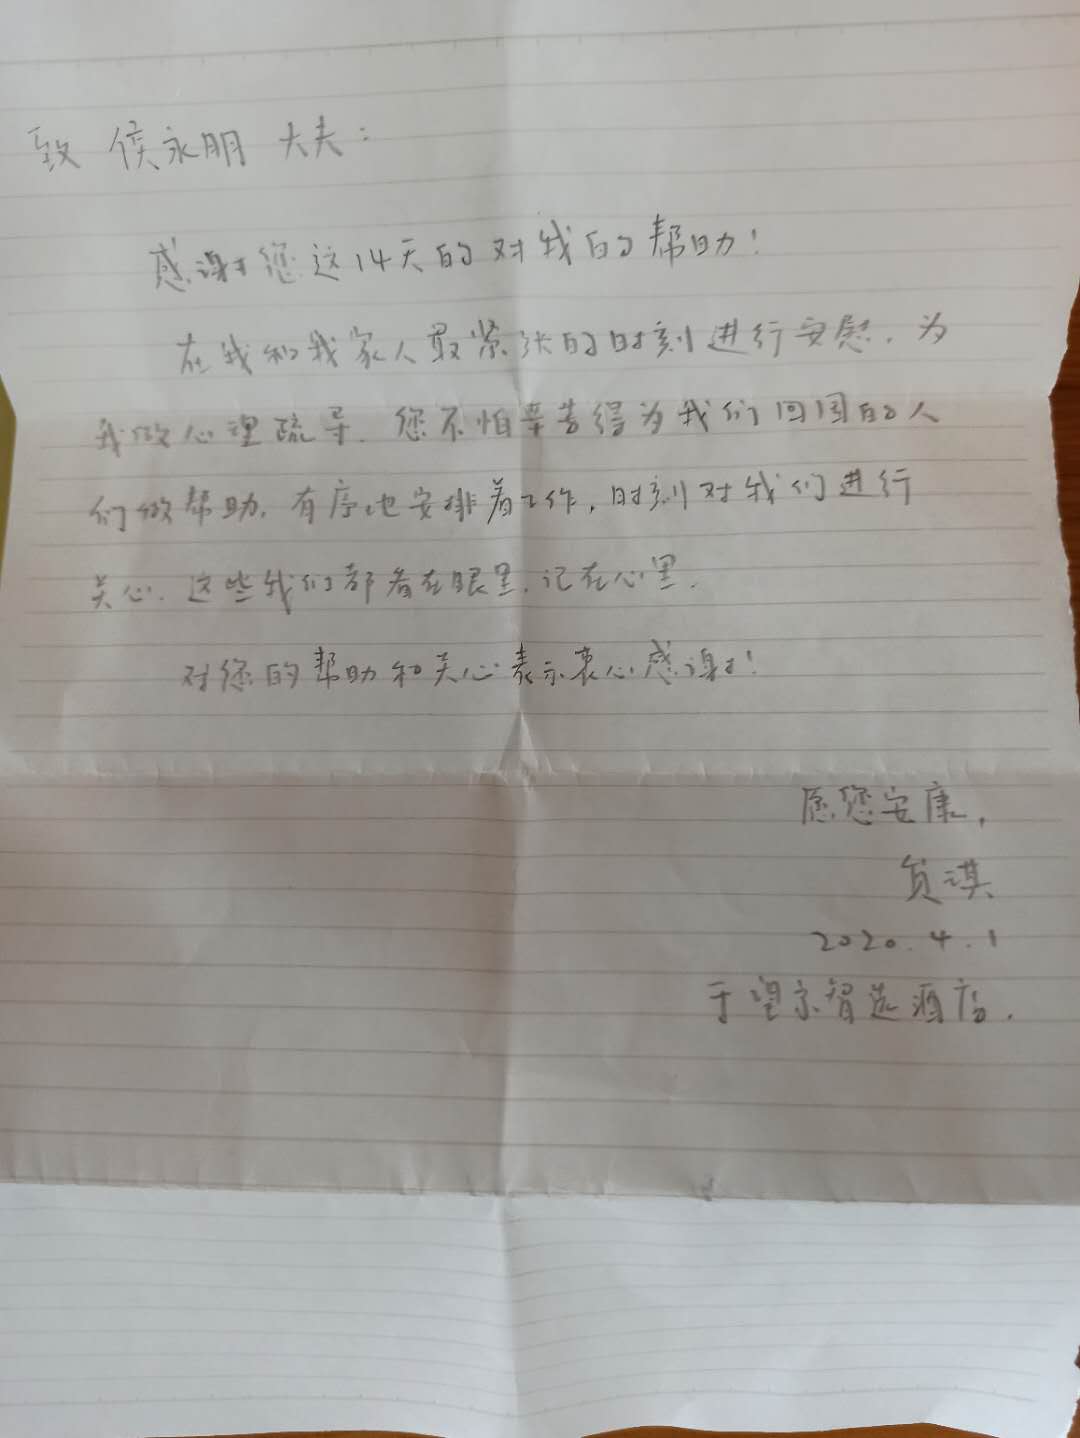 致 侯永朋 大夫：
感谢您这14天的对我的帮助！
在我和我家人最紧张的时刻进行安慰，为
我做心理疏导．您不怕辛苦得为我们回国的人
们做帮助，有序地安排着工作，时刻对我们进行
关心．这些我们都看在眼里，记在心里．
对您的帮助和关心表示衷心感谢！
愿您安康，
贠琪
2020.4.1
于望京智选酒店．